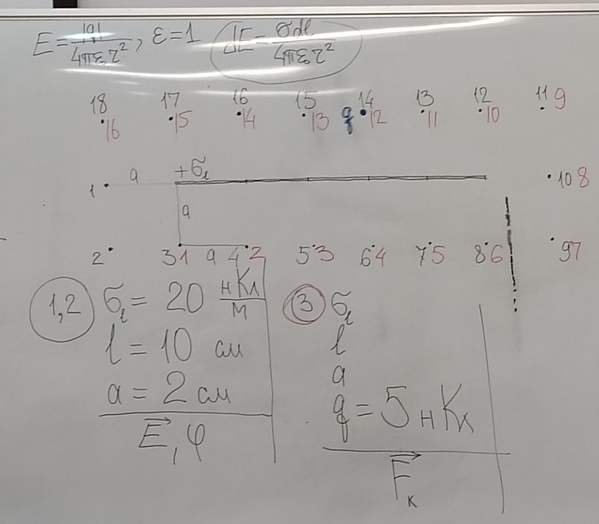 E = |q| / 4πεr², ε=1 dE = σdl / 4πεr²
18 17 16 15 14 13 12 11 9
16 15 14 13 q 12 11 10
1 a +σₗ 10 8
a
2 3 1 a 4 2 5 3 6 4 7 5 8 6 9 7
1,2 σₗ = 20 нКл/м
l = 10 см
a = 2 см
E⃗, φ
3 σₗ
l
a
q = 5 нКл
F⃗к